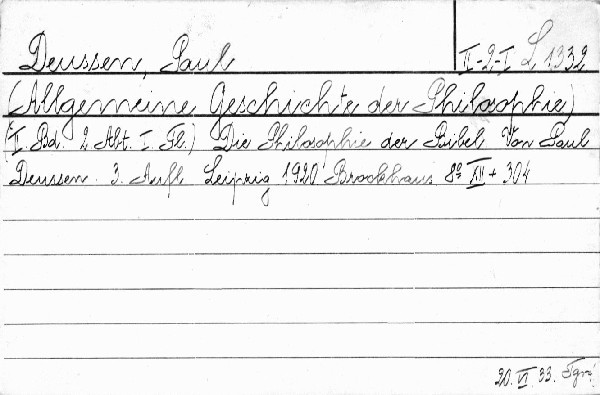 Deussen, Paul II-2-I L 1332
(Allgemeine Geschichte der Philosophie)
(I. Bd. 2 Abt. I. Tl.) Die Philosophie der Bibel Von Paul
Deussen. 3. Aufl. Leipzig 1920 Brockhaus 8º XII + 304
20. VI. 33.